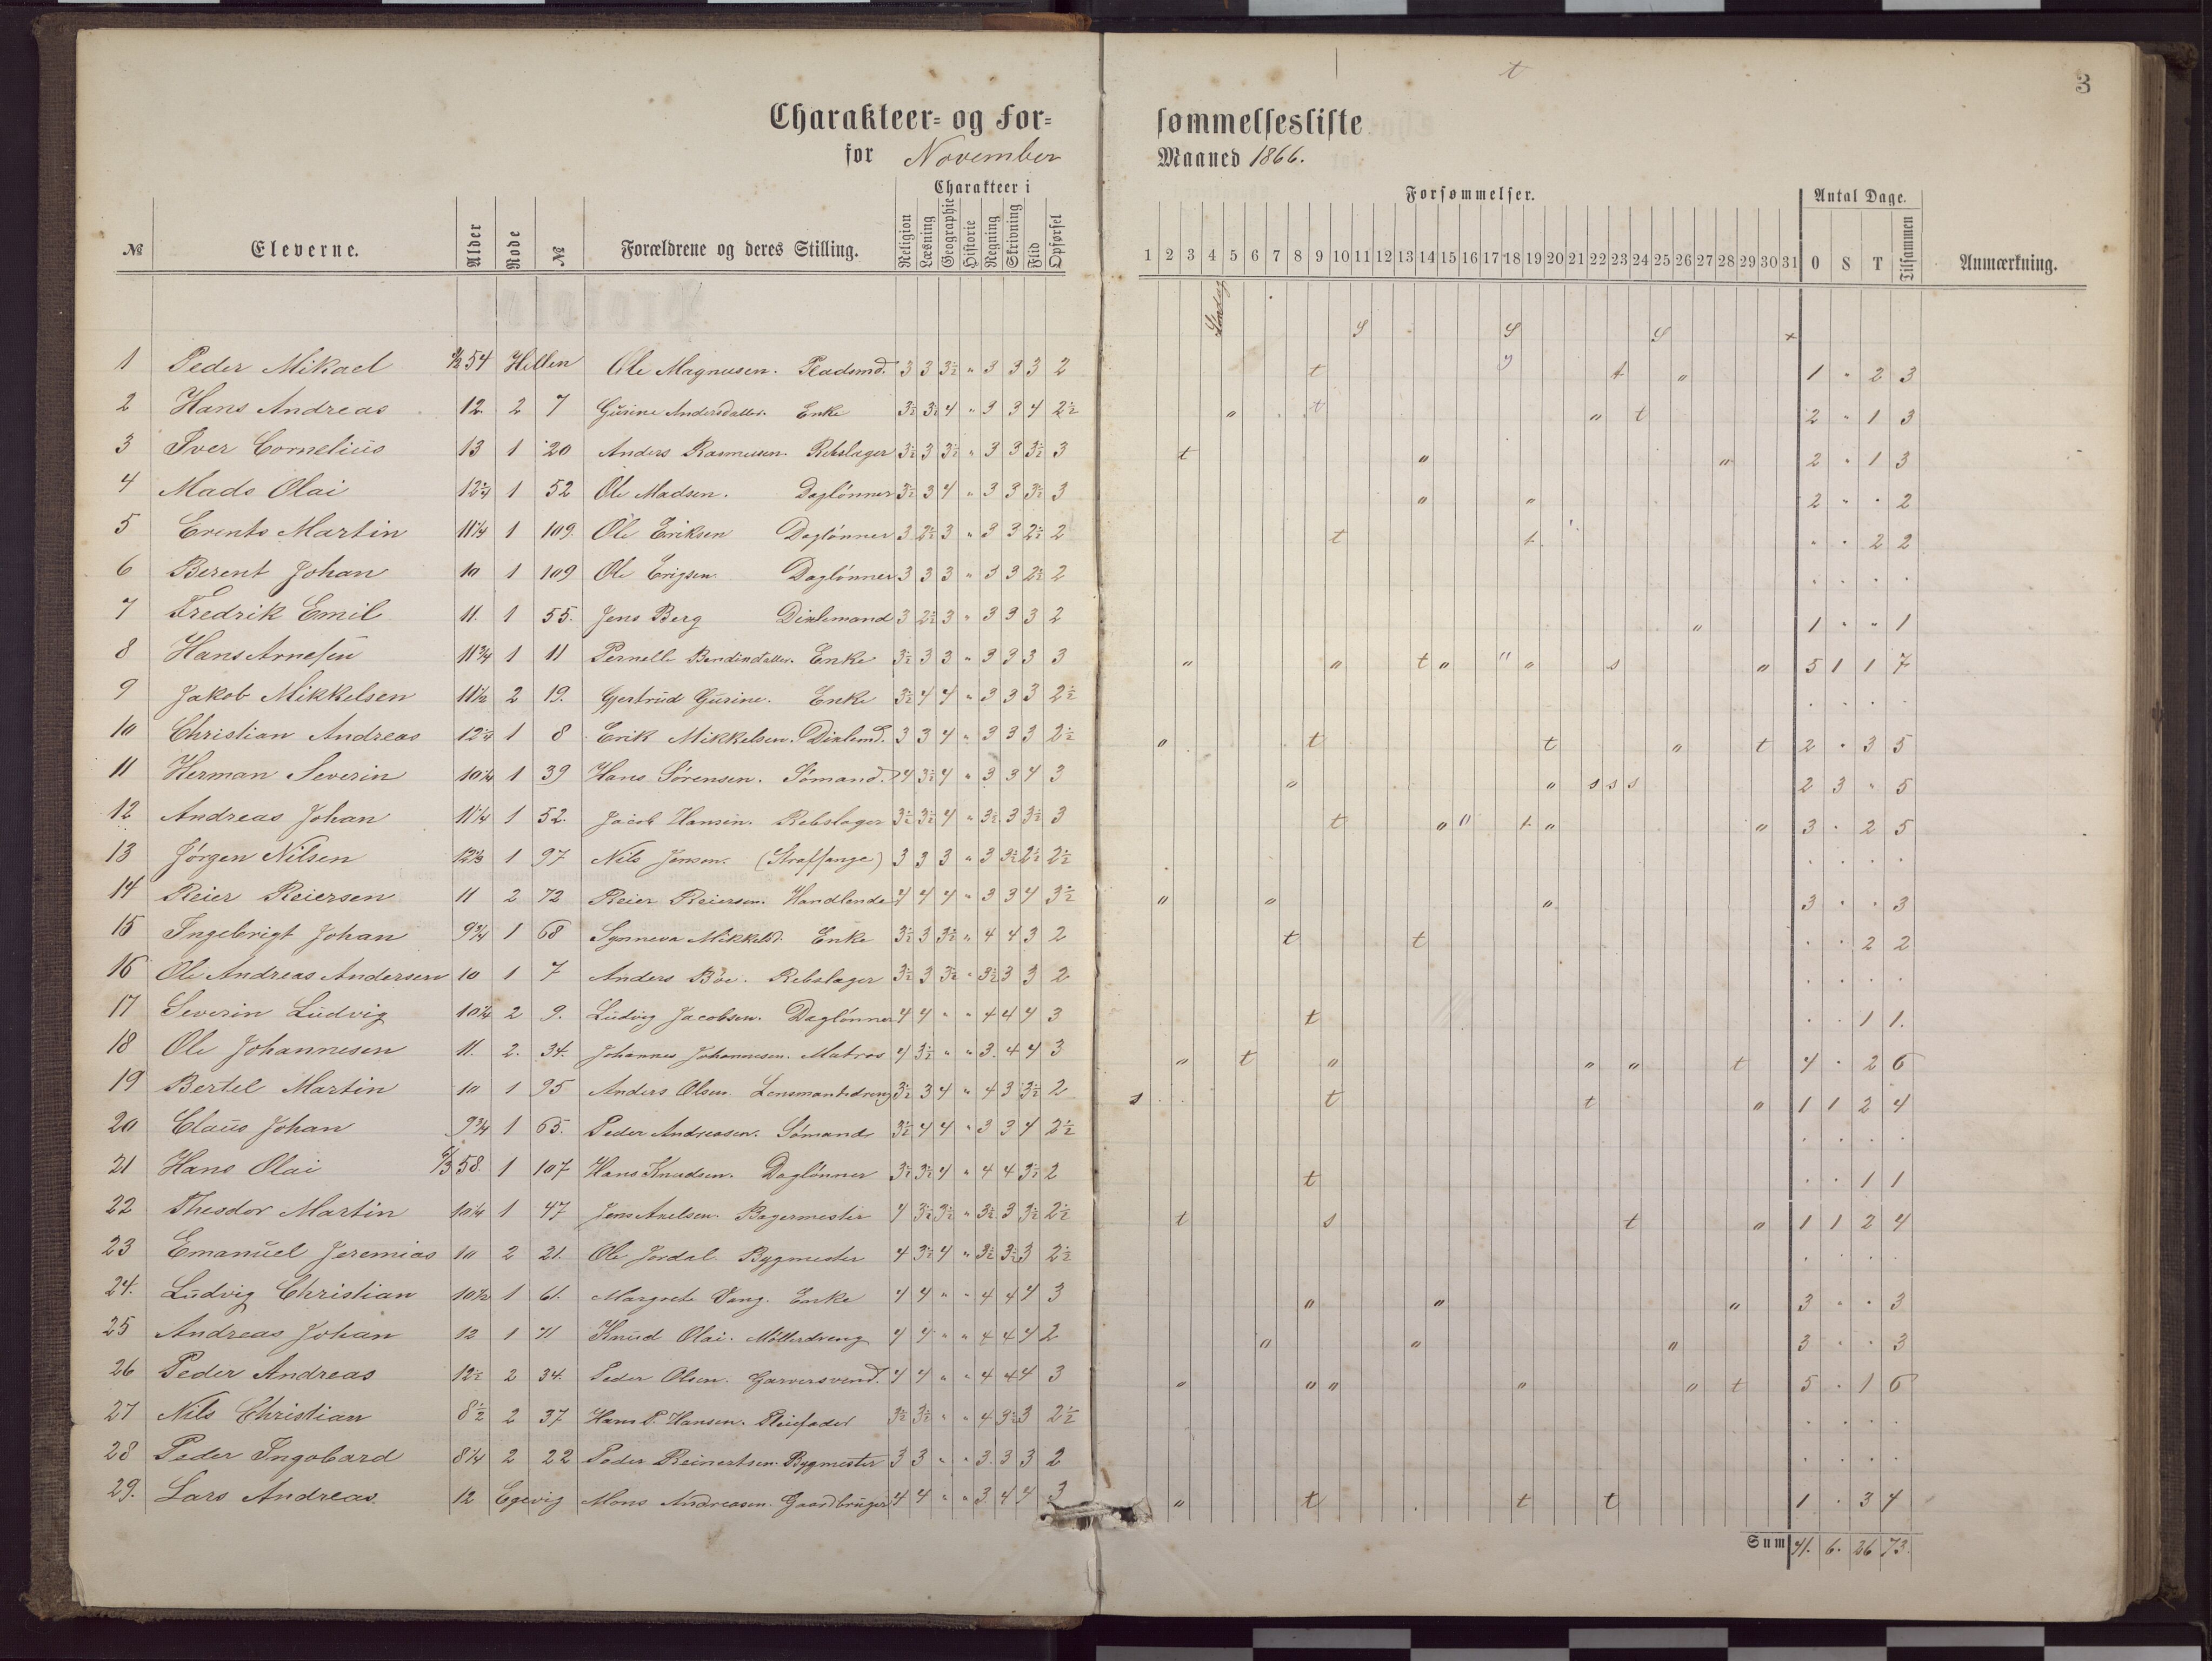 3
Charakteer- og Forsømmelsesliste
for November Maaned 1866.
Charakteer i
Forsømmelser.
Antal Dage.
№ Eleverne. Alder Rode № Forældrene og deres Stilling. Religion Læsning Geographie Historie Regning Skrivning Flid Opførsel 1 2 3 4 5 6 7 8 9 10 11 12 13 14 15 16 17 18 19 20 21 22 23 24 25 26 27 28 29 30 31 O S T Tilsammen Anmærkning.
Søndag S S S
1 Peder Mikael 54 Hellen Ole Magnusen. Pladsmd. 3 3 3½ " 3 3 3 2 t t " 1 " 2 3
2 Hans Andreas 12 2 7 Gusine Andersdatter. Enke 3½ 3½ 4 " 3 3 4 2½ " t " t 2 " 1 3
3 Iver Cornelius 13 1 20 Anders Rasmusen. Rebslager 3½ 3 3½ " 3 3 3½ 3 t " " 2 " 1 3
4 Mads Olai 12¾ 1 52 Ole Madsen. Daglønner 3½ 3 4 " 3 3 3½ 3 " " 2 " " 2
5 Erents Martin 11¼ 1 109. Ole Eriksen Daglønner 3 2½ 3 " 3 3 2½ 2 t t " " 2 2
6 Berent Johan 10 1 109 Ole Erigsen Daglønner 3 3 3 " 3 3 2½ 2 " " " "
7 Fredrik Emil 11. 1 55. Jens Berg Dixlemand 3 2½ 3 " 3 3 3 2 " 1 " " 1
8 Hans Arnesen 11¾ 1 11 Pernelle Bendixdatter. Enke 3½ 3 3 " 3 3 3 3 " " t " " " s " 5 1 1 7
9 Jakob Mikkelsen 11½ 2 19. Gjertrud Gusine. Enke 3½ 4 4 " 3 3 3 2½ " " " "
10 Christian Andreas 12¾ 1 8 Erik Mikkelsen. Dixlemd. 3 3 4 " 3 3 3 2½ " t t " t 2 " 3 5
11 Herman Severin 10¼ 1 39 Hans Sørensen. Sømand. 4 3½ 4 " 3 3 4 3 " " s s s 2 3 " 5
12 Andreas Johan 11¼ 1 52. Jacob Hansen. Rebslager 3½ 3½ 4 " 3½ 3 3½ 3 t " " t " " 3 " 2 5
13 Jørgen Nilsen 12⅓ 1 97 Nils Jensen. (Straffange) 3 3 3 " 3 3½ 2½ 2½ " " " "
14 Reier Reiersen 11 2 72 Reier Reiersen. Handlende 4 4 4 " 3 3 4 3½ " " " 3 " " 3
15 Ingebrigt Johan 9¾ 1 68 Synneva Mikkelsd. Enke 3½ 3 3½ " 4 4 3 2 t t " " 2 2
16 Ole Andreas Andersen 10 1 7 Anders Bøe. Rebslager 3½ 3 3½ " 3½ 3 3 2 " " " "
17 Severin Ludvig 10¼ 2 9. Ludvig Jacobsen. Daglønner 4 4 " " 4 4 4 3 t " " 1 1.
18 Ole Johannesen 11. 2. 34. Johannes Johannesen. Matros 4 3½ " " 3. 4 4 3 " t " " " t 4 " 2 6
19 Bertel Martin 10 1 95 Anders Olsen. Lensmantsdreng 3½ 3 4 " 4 3 3½ 2 s t t " 1 1 2 4
20 Claus Johan 9¾ 1 65. Peder Andreasen. Sømand 3½ 4 4 " 3 3 4 2½ " " " "
21 Hans Olai 58. 1 107 Hans Knudsen. Daglønner 3½ 3½ 4 " 4 4 3½ 2 t " " 1 1
22 Theodor Martin 10¼ 1 47 Jens Axelsen. Bagermester 4 3½ 3½ " 3½ 3 3½ 2½ t s t " 1 1 2 4
23 Emanuel Jeremias 10 2 21. Ole Jordal. Bygmester 4 3½ 4 " 3½ 3½ 3 2½ " " " "
24. Ludvig Christian 10½ 1 61. Margrete Vang. Enke 4 4 " " 4 4 4 3 " " " 3 " " 3
25 Andreas Johan 12 1 71 Knud Olai. Møllerdreng 4 4 " " 4 4 4 2 " " " 3 " " 3
26 Peder Andreas 12½ 2 34. Peder Olsen. Garversvend. 4 4 " " 4 4 4 3 " " " " " t 5 " 1 6
27 Nils Christian 8½ 2 37 Hans P. Hansen. Pleiefader 3½ 3½ " " 4 3½ 3 2½ " " " "
28 Peder Ingobard 8¼ 2 22 Peder Reinertsen. Bygmester 3 3 " " 3. 3 3 2 " " " "
29. Lars Andreas. 12 Egevig Mons Andreasen. Gaardbruger 4 4 " " 3. 4 4 3 " t t t 1 " 3 4
Sum 41. 6. 26 73.